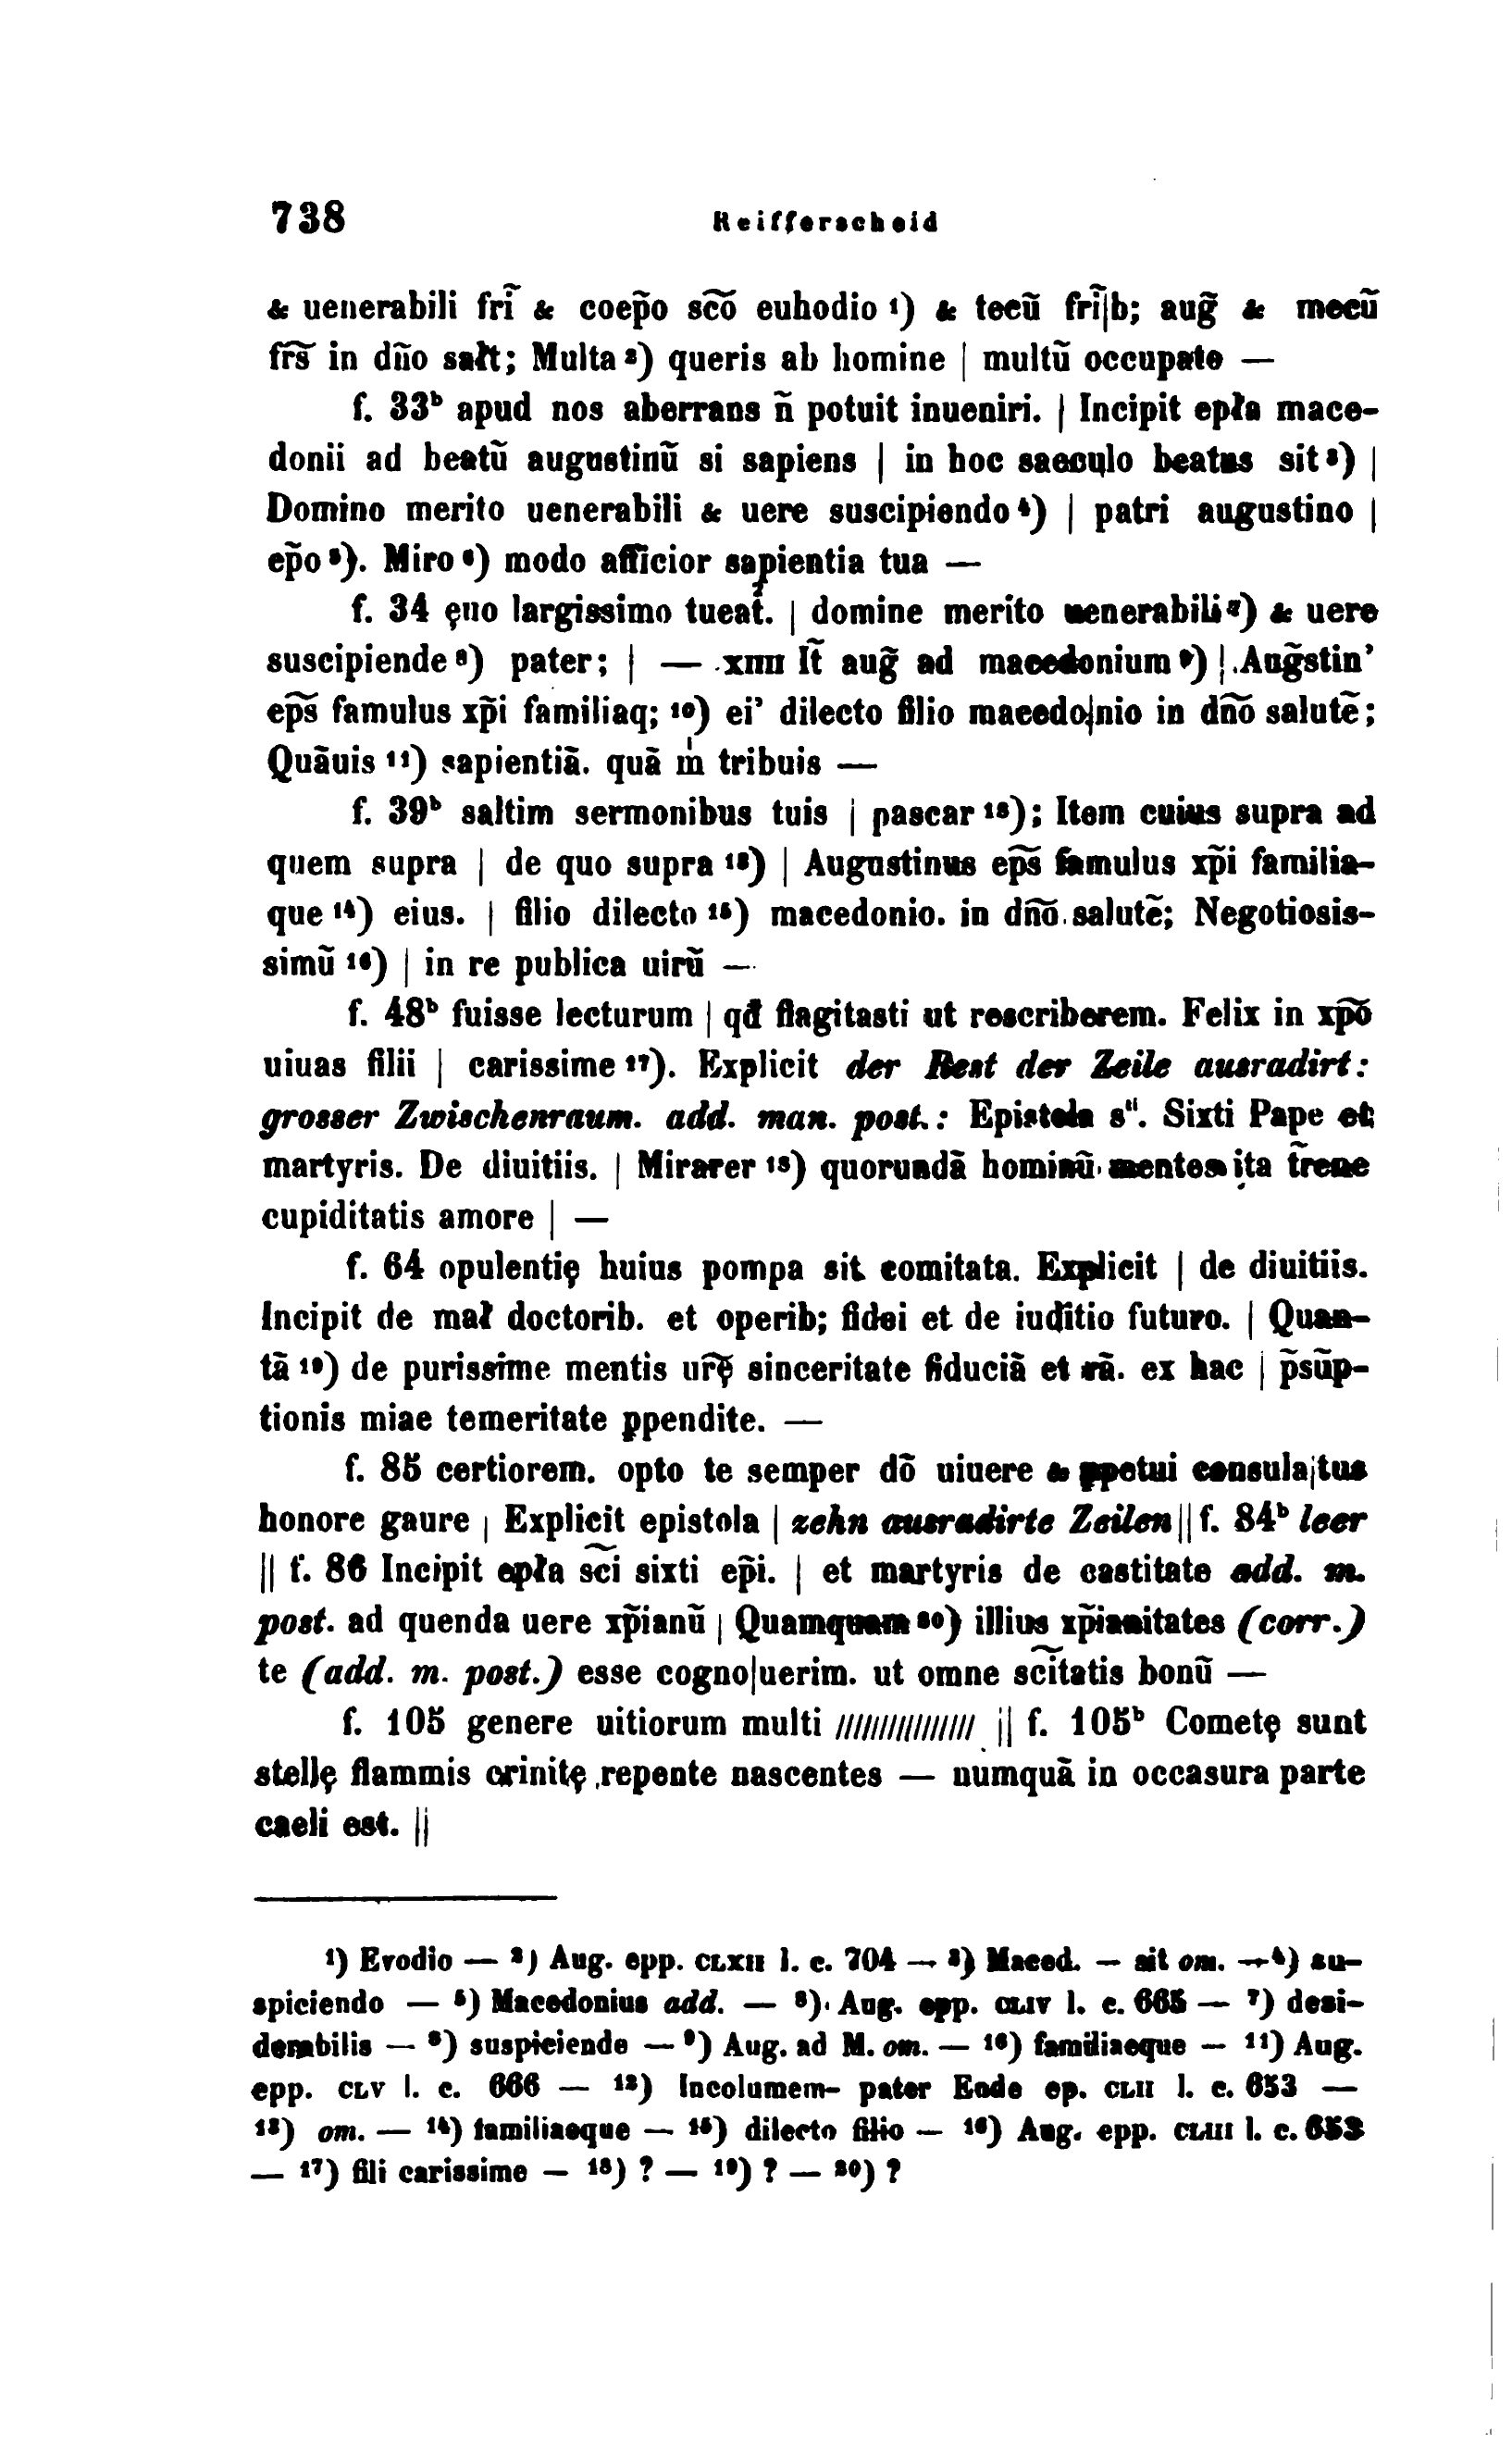 738 Reifferscheid
& uenerabili frĩ & coep̃o sc̃õ euhodio ¹) & tecũ frĩ|b; aug̃ & mecũ
fr̃s̃ in dño sał̃t; Multa ²) queris ab homine | multũ occupato —
f. 33ᵇ apud nos aberrans ñ potuit inueniri. | Incipit epła mace-
donii ad beatũ augustinũ si sapiens | in hoc saeculo beatus sit ³) |
Domino merito uenerabili & uere suscipiendo ⁴) | patri augustino |
ep̃o ⁵). Miro ⁶) modo afficior sapientia tua —
f. 34 ęuo largissimo tueat̓. | domine merito uenerabili ⁷) & uere
suscipiende ⁸) pater; | — xıııı It̃ aug̃ ad macedonium ⁹) | Aug̃stin’
ep̃s̃ famulus xp̃i familiaq; ¹⁰) ei’ dilecto filio macedo|nio in dñõ salutẽ;
Quãuis ¹¹) sapientiã. quã m̍ tribuis —
f. 39ᵇ saltim sermonibus tuis | pascar ¹²); Item cuius supra ad
quem supra | de quo supra ¹³) | Augustinus ep̃s̃ famulus xp̃i familia-
que ¹⁴) eius. | filio dilecto ¹⁵) macedonio. in dñõ salutẽ; Negotiosis-
simũ ¹⁶) | in re publica uirũ —
f. 48ᵇ fuisse lecturum | qđ flagitasti ut rescriberem. Felix in xp̃õ
uiuas filii | carissime ¹⁷). Explicit der Rest der Zeile ausradirt:
grosser Zwischenraum. add. man. post.: Epistola sᵗⁱ. Sixti Pape et
martyris. De diuitiis. | Mirarer ¹⁸) quorundã hominũ mentes ita t̃rene
cupiditatis amore | —
f. 64 opulentię huius pompa sit comitata. Explicit | de diuitiis.
Incipit de mał doctorib. et operib; fidei et de iuditio futuro. | Quan-
tã ¹⁹) de purissime mentis ur̃ę sinceritate fiduciã et rã. ex hac | p̃sũp-
tionis miae temeritate ꝑpendite. —
f. 85 certiorem. opto te semper dõ uiuere & ꝑpetui consula|tus
honore gaure | Explicit epistola | zehn ausradirte Zeilen || f. 84ᵇ leer
|| f. 86 Incipit epła sc̃i sixti ep̃i. | et martyris de castitate add. m.
post. ad quenda uere xp̃ianũ | Quamquam ²⁰) illius xp̃ianitates (corr.)
te (add. m. post.) esse cogno|uerim. ut omne sc̃itatis bonũ —
f. 105 genere uitiorum multi /////////////// || f. 105ᵇ Cometę sunt
stellę flammis crinitę repente nascentes — numquã in occasura parte
caeli est. ||
¹) Evodio — ²) Aug. epp. CLXII l. c. 704 — ³) Maced. — sit om. — ⁴) su-
spiciendo — ⁵) Macedonius add. — ⁶) Aug. epp. CLIV l. c. 665 — ⁷) desi-
derabilis — ⁸) suspiciende — ⁹) Aug. ad M. om. — ¹⁰) familiaeque — ¹¹) Aug.
epp. CLV l. c. 666 — ¹²) Incolumem- pater Ende ep. CLII l. c. 653 —
¹³) om. — ¹⁴) familiaeque — ¹⁵) dilecto filio — ¹⁶) Aug. epp. CLIII l. c. 653
— ¹⁷) fili carissime — ¹⁸) ? — ¹⁹) ? — ²⁰) ?